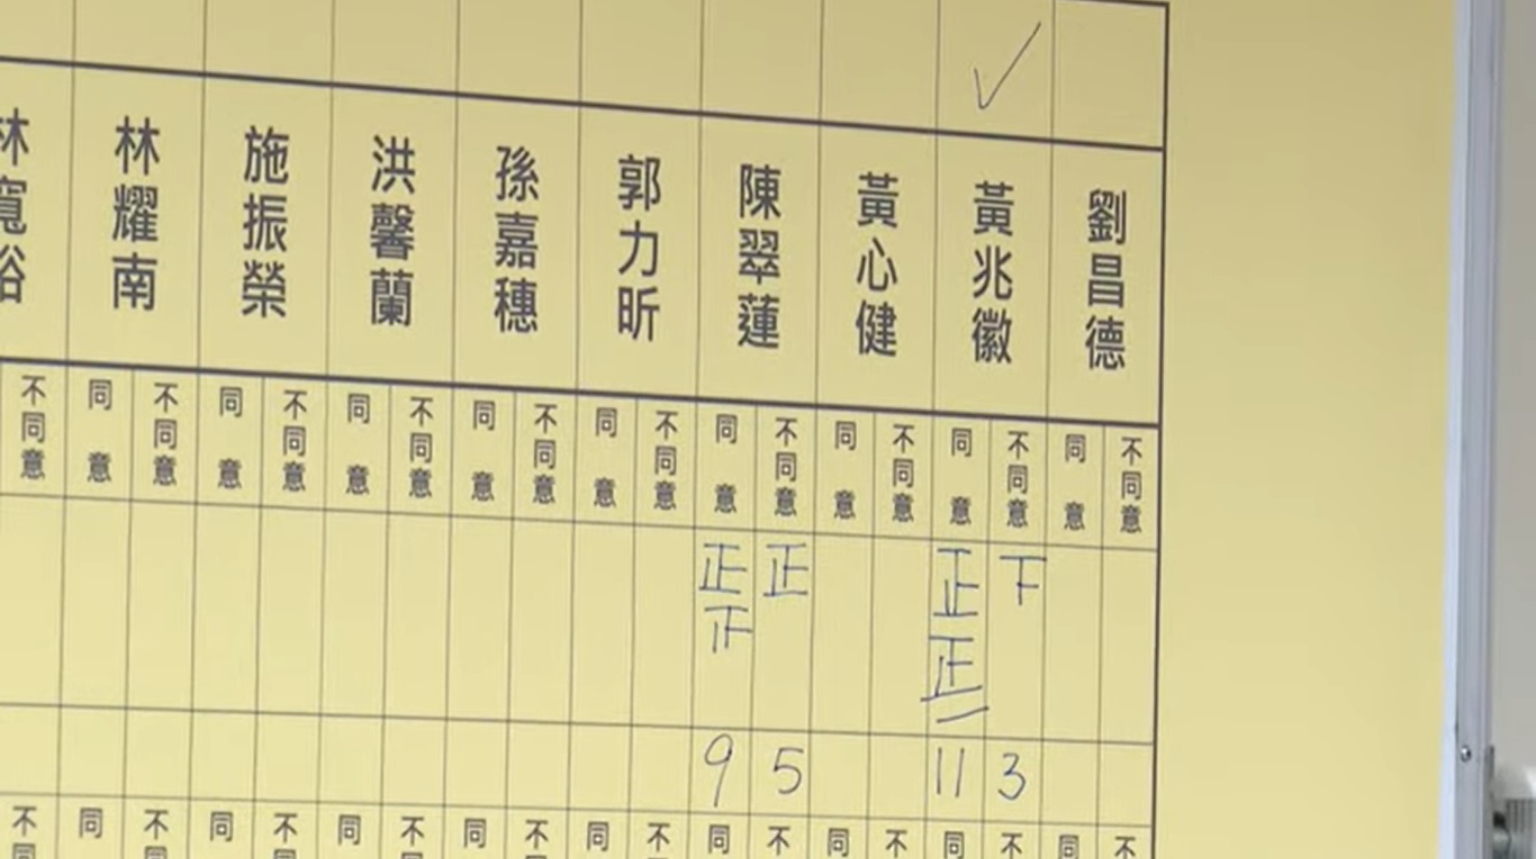 ✓
林寬裕
林耀南
施振榮
洪馨蘭
孫嘉穗
郭力昕
陳翠蓮
黃心健
黃兆徽
劉昌德
不同意 同意 不同意 同意 不同意 同意 不同意 同意 不同意 同意 不同意 同意 不同意 同意 不同意 同意 不同意 同意 不同意
正 正 正 下
正 正 一
9 5 11 3
不同 同 不同 同 不同 同 不 同 不 同 不 同 不 同 不 同 不 同 不